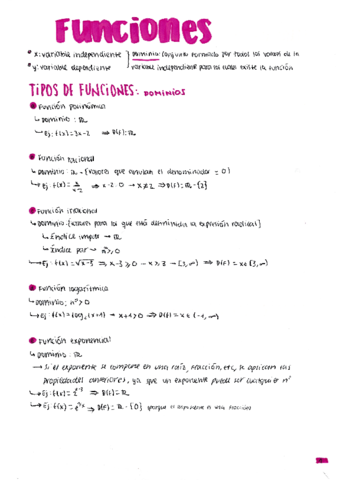 Funciones
* x: variable independiente } dominio: conjunto formado por todos los valores de la
* y: variable dependiente variable independiente para los cuales existe la función
TIPOS DE FUNCIONES: DOMINIOS
Función polinómica
↳ Dominio: ℝ
↳ Ej: f(x) = 3x-2 → D(f): ℝ
Función racional
↳ Dominio: ℝ - {valores que anulan el denominador = 0}
↳ Ej: f(x) = 3/x-2 ⇒ x-2=0 → x≠2 ⇒ D(f): ℝ - {2}
Función irracional
↳ Dominio: {valores para los que está definida la expresión radical}
↳ Índice impar → ℝ
↳ Índice par → n° ≥ 0
↳ Ej: f(x) = √x-3 ⇒ x-3 ≥ 0 → x ≥ 3 → [3, ∞) ⇒ D(f) = x∈[3, ∞)
Función logarítmica
↳ Dominio: n° > 0
↳ Ej: f(x) = log₂(x+1) → x+1 > 0 ⇒ D(f) = x∈(-1, ∞)
Función exponencial
↳ Dominio: ℝ
→ Si el exponente se comporta en una raíz, fracción, etc, se aplican las
propiedades anteriores, ya que un exponente puede ser cualquier n°
↳ Ej: f(x) = ⇒ D(f) = ℝ
↳ Ej: f(x) = ⇒ D(f) = ℝ - {0} porque el exponente es una fracción